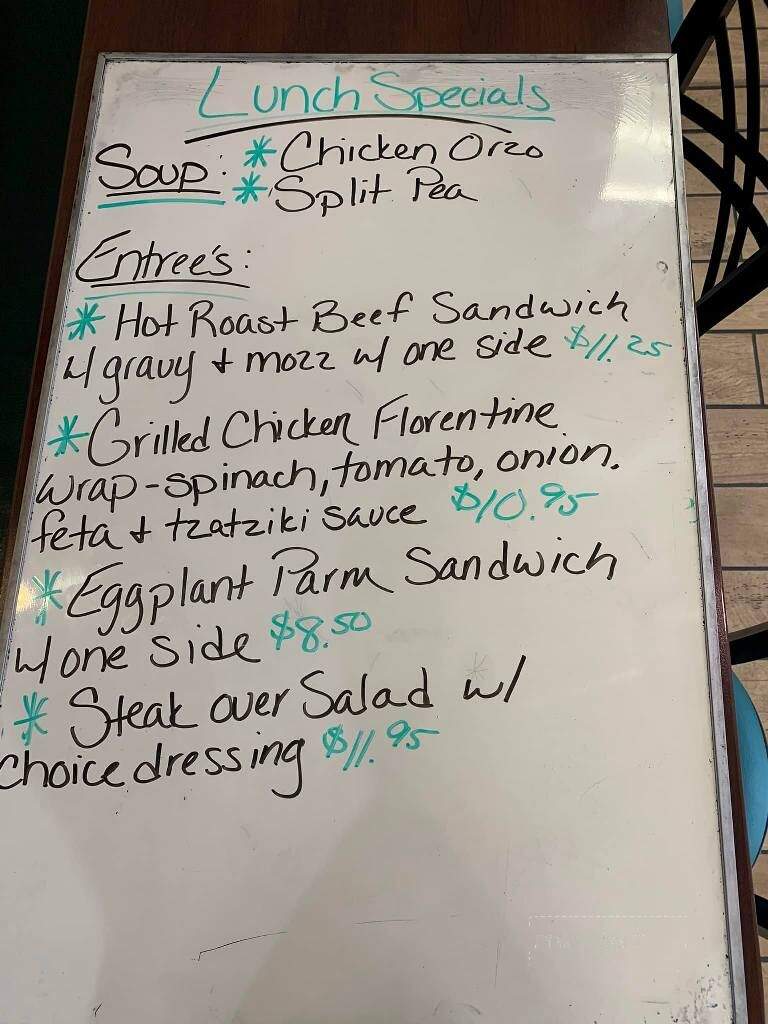 Lunch Specials
Soup: * Chicken Orzo
* Split Pea
Entree's:
* Hot Roast Beef Sandwich
w/ gravy + mozz w/ one side $11.25
* Grilled Chicken Florentine
wrap - spinach, tomato, onion.
feta + tzatziki sauce $10.95
* Eggplant Parm Sandwich
w/ one side $8.50
* Steak over Salad w/
choice dressing $11.95